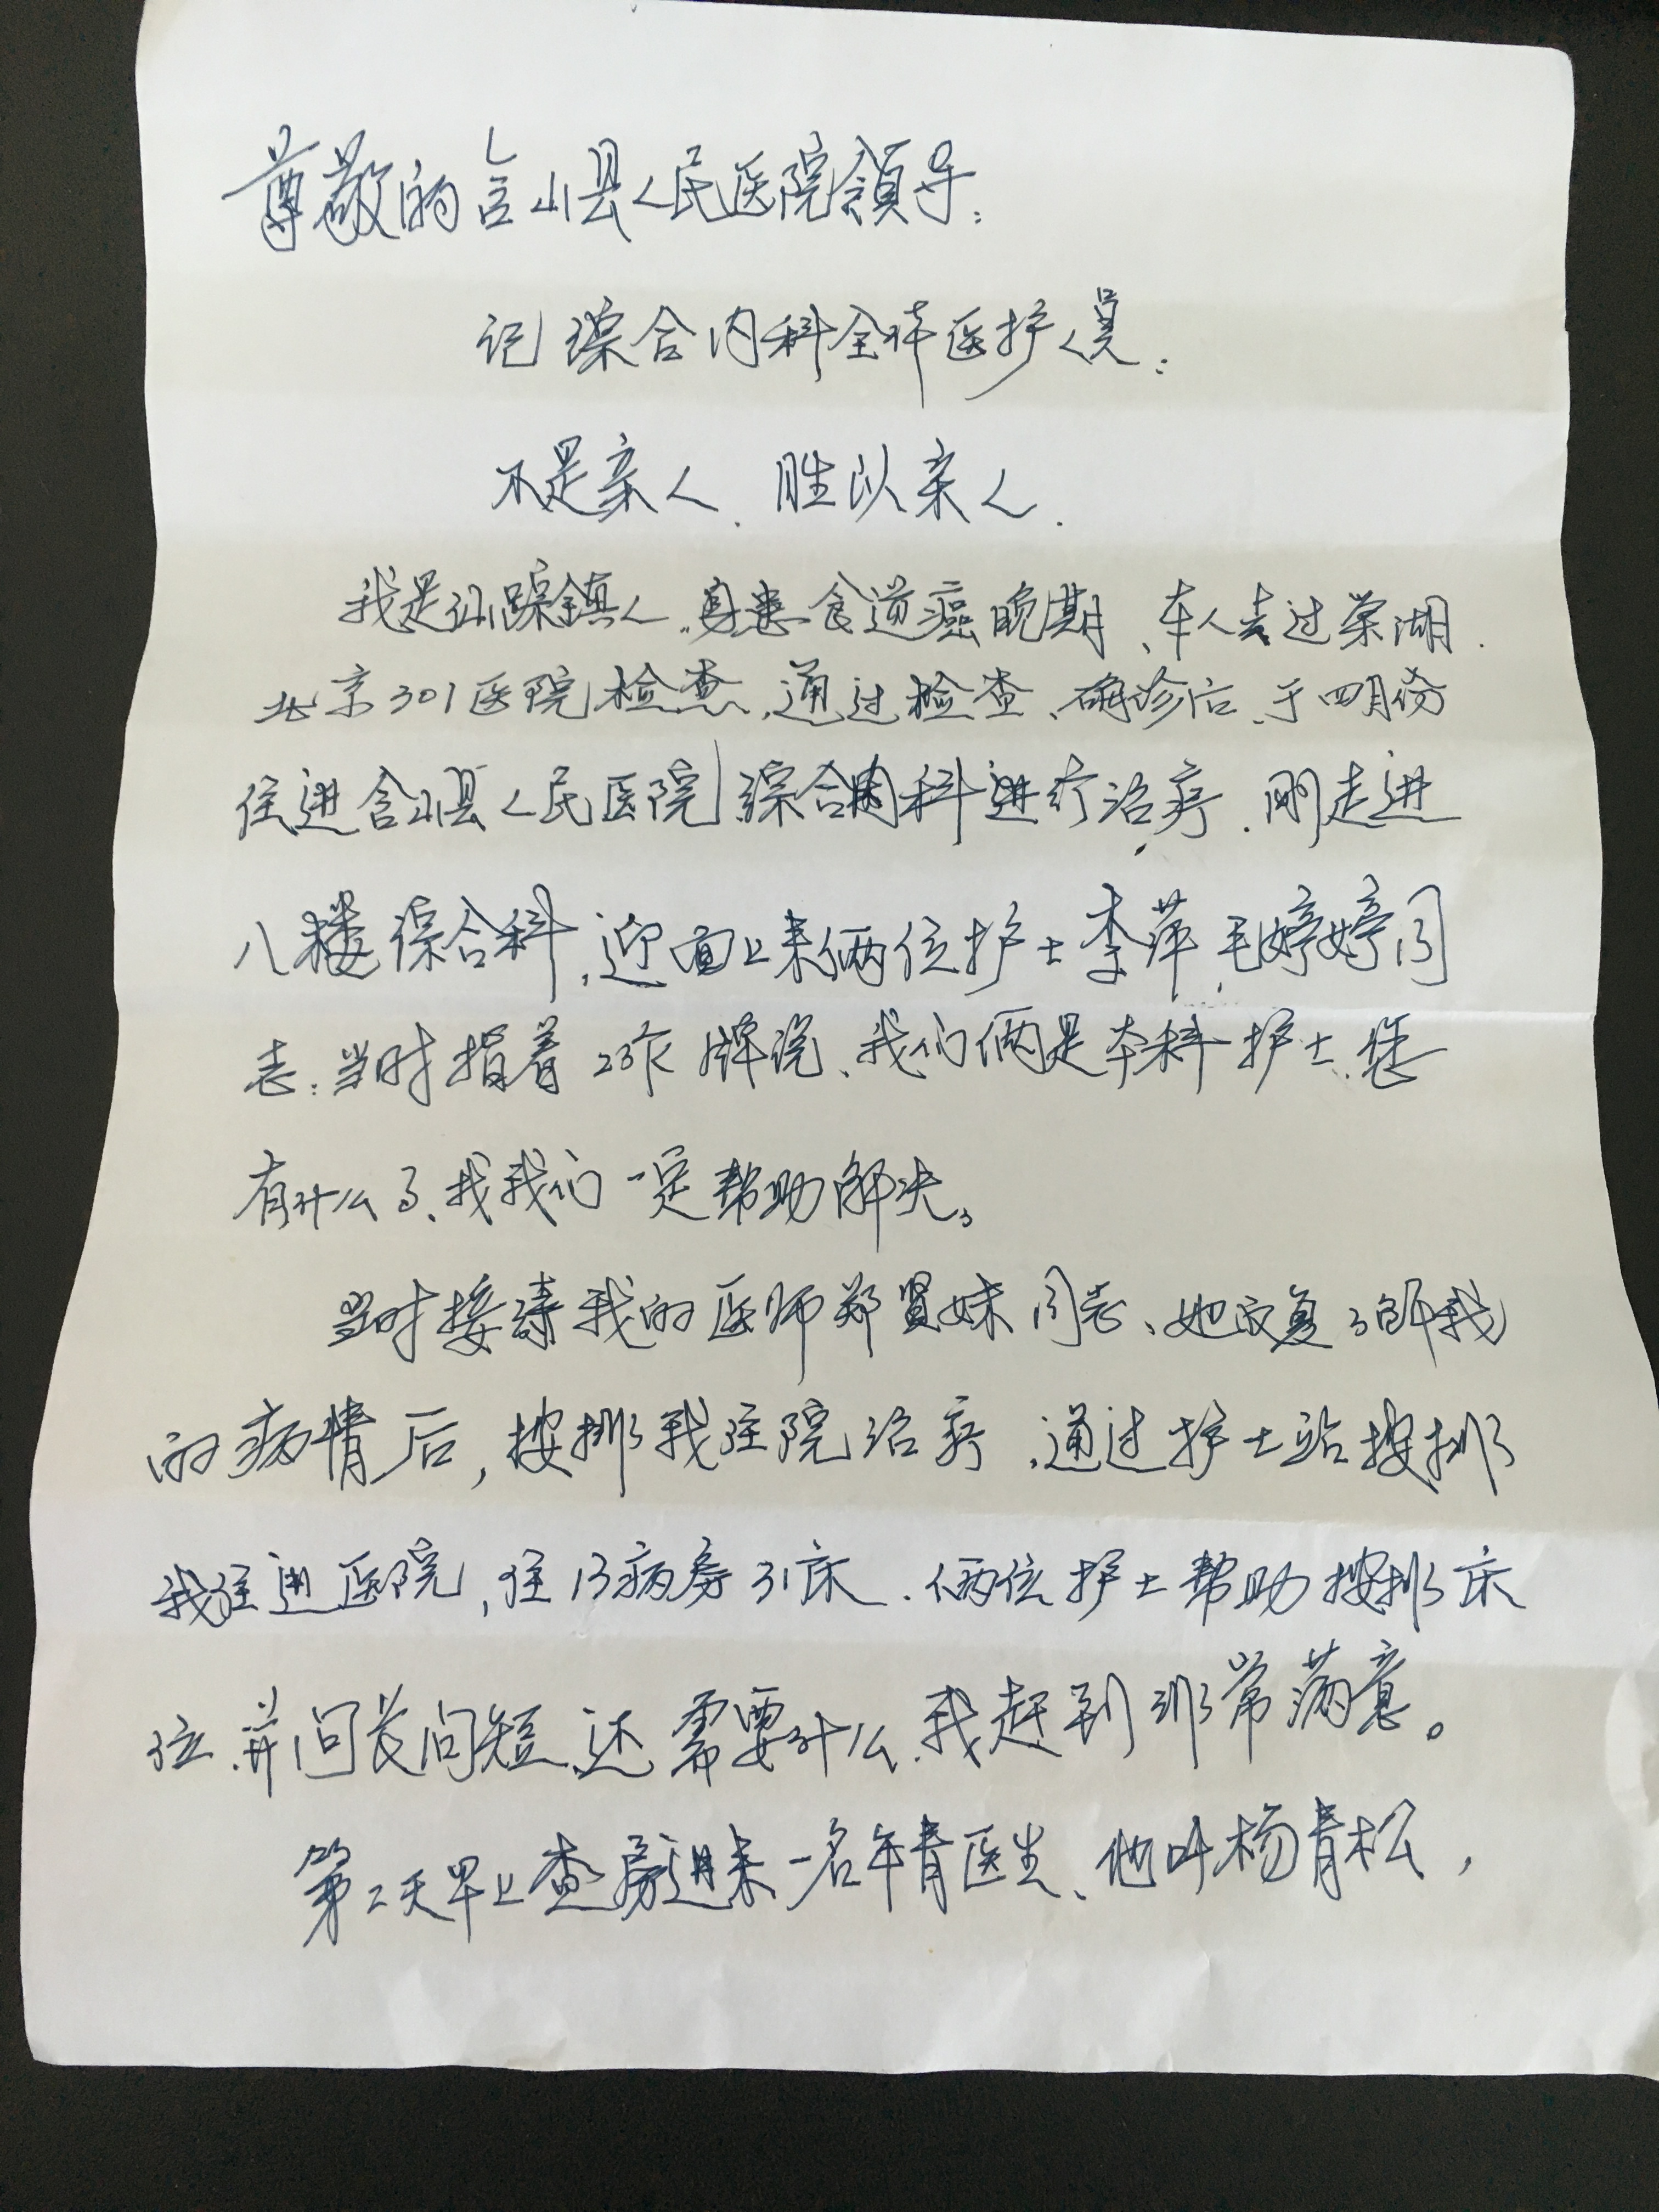 尊敬的含山县人民医院领导:
记综合内科全体医护人员:
不是亲人、胜以亲人.
我是仙踪镇人.身患食道癌晚期、本人去过巢湖.
北京301医院检查,通过检查、确诊后、于四月份
住进含山县人民医院综合内科进行治疗.刚走进
八楼综合科,迎面上来俩位护士李萍、毛婷婷同
志:当时指着 牌说、我们俩是本科护士、您
有什么事、找我们一定帮助解决。
当时接待我的医师郑贤妹同志、她反复了解我
的病情后,按排我住院治疗.通过护士站按排
我住进医院,住13病房31床.俩位护士帮助按排床
位.并问长问短、还需要什么.我赶到非常满意。
第二天早上查房进来一名年青医生、他叫杨青松,